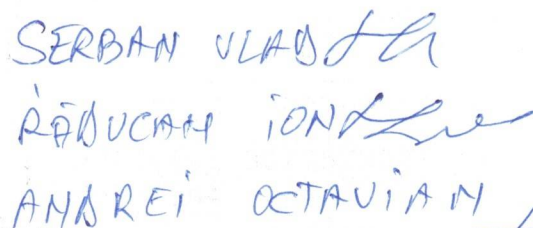 SERBAN VLAD
RĂDUCAN ION
ANDREI OCTAVIAN